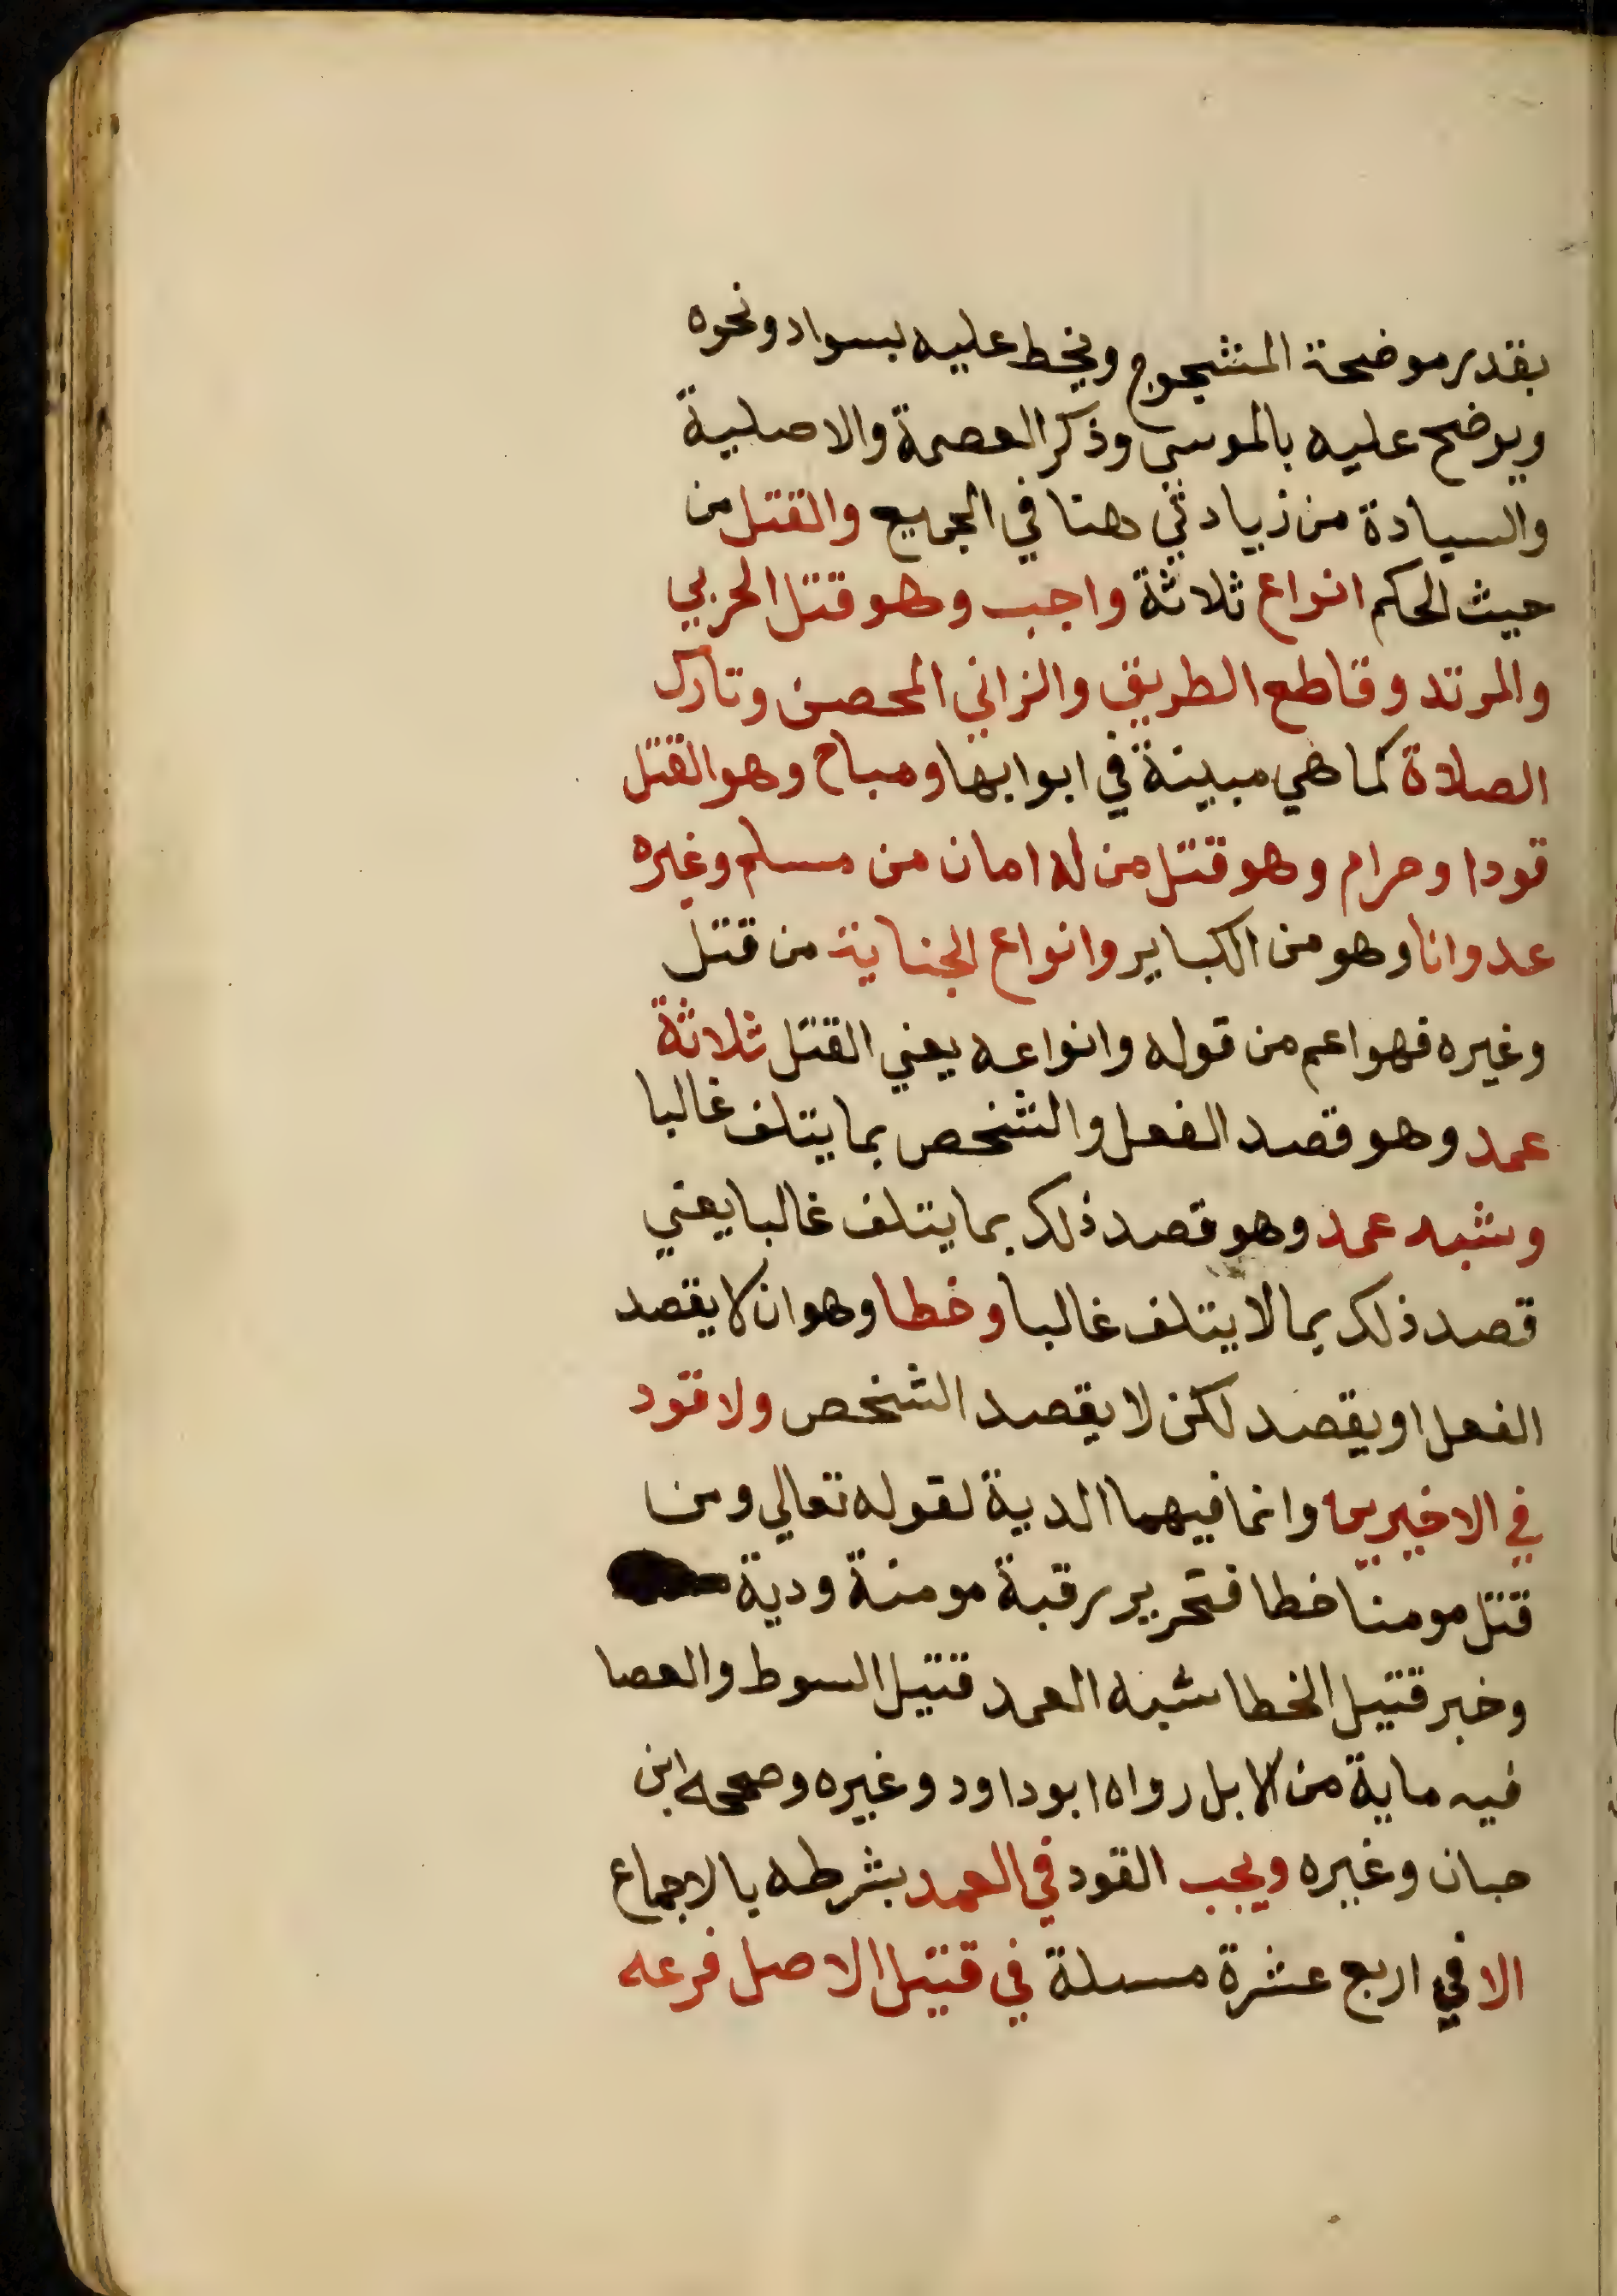 بقدر موضحة المشجوج ويخط عليه بسواد ونحوه
ويوضح عليه بالموسي وذكر العصمة والاصلية
والسيادة من زيادتي هنا في الجميع والقتل من
حيث الحكم انواع ثلاثة واجب وهو قتل الحربي
والمرتد وقاطع الطريق والزاني المحصن وتارك
الصلاة كما هي مبينة في ابوابها ومباح وهو القتل
قودا وحرام وهو قتل من له امان من مسلم وغيره
عدوانا وهو من الكباير وانواع الجناية من قتل
وغيره فهو اعم من قوله وانواعه يعني القتل ثلاثة
عمد وهو قصد الفعل والشخص بما يتلف غالبا
وشبه عمد وهو قصد ذلك بما يتلف غالبا يعني
قصد ذلك بما لا يتلف غالبا وخطا وهو ان لا يقصد
الفعل او يقصد لكن لا يقصد الشخص ولا قود
في الاخيرين وانما فيهما الدية لقوله تعالي ومن
قتل مومنا خطا فتحرير رقبة مومنة ودية
وخبر قتيل الخطا شبه العمد قتيل السوط والعصا
فيه ماية من الابل رواه ابو داود وغيره وصححه ابن
حبان وغيره ويجب القود في العمد بشرطه بالاجماع
الا في اربع عشرة مسلة في قتيل الاصل فرعه